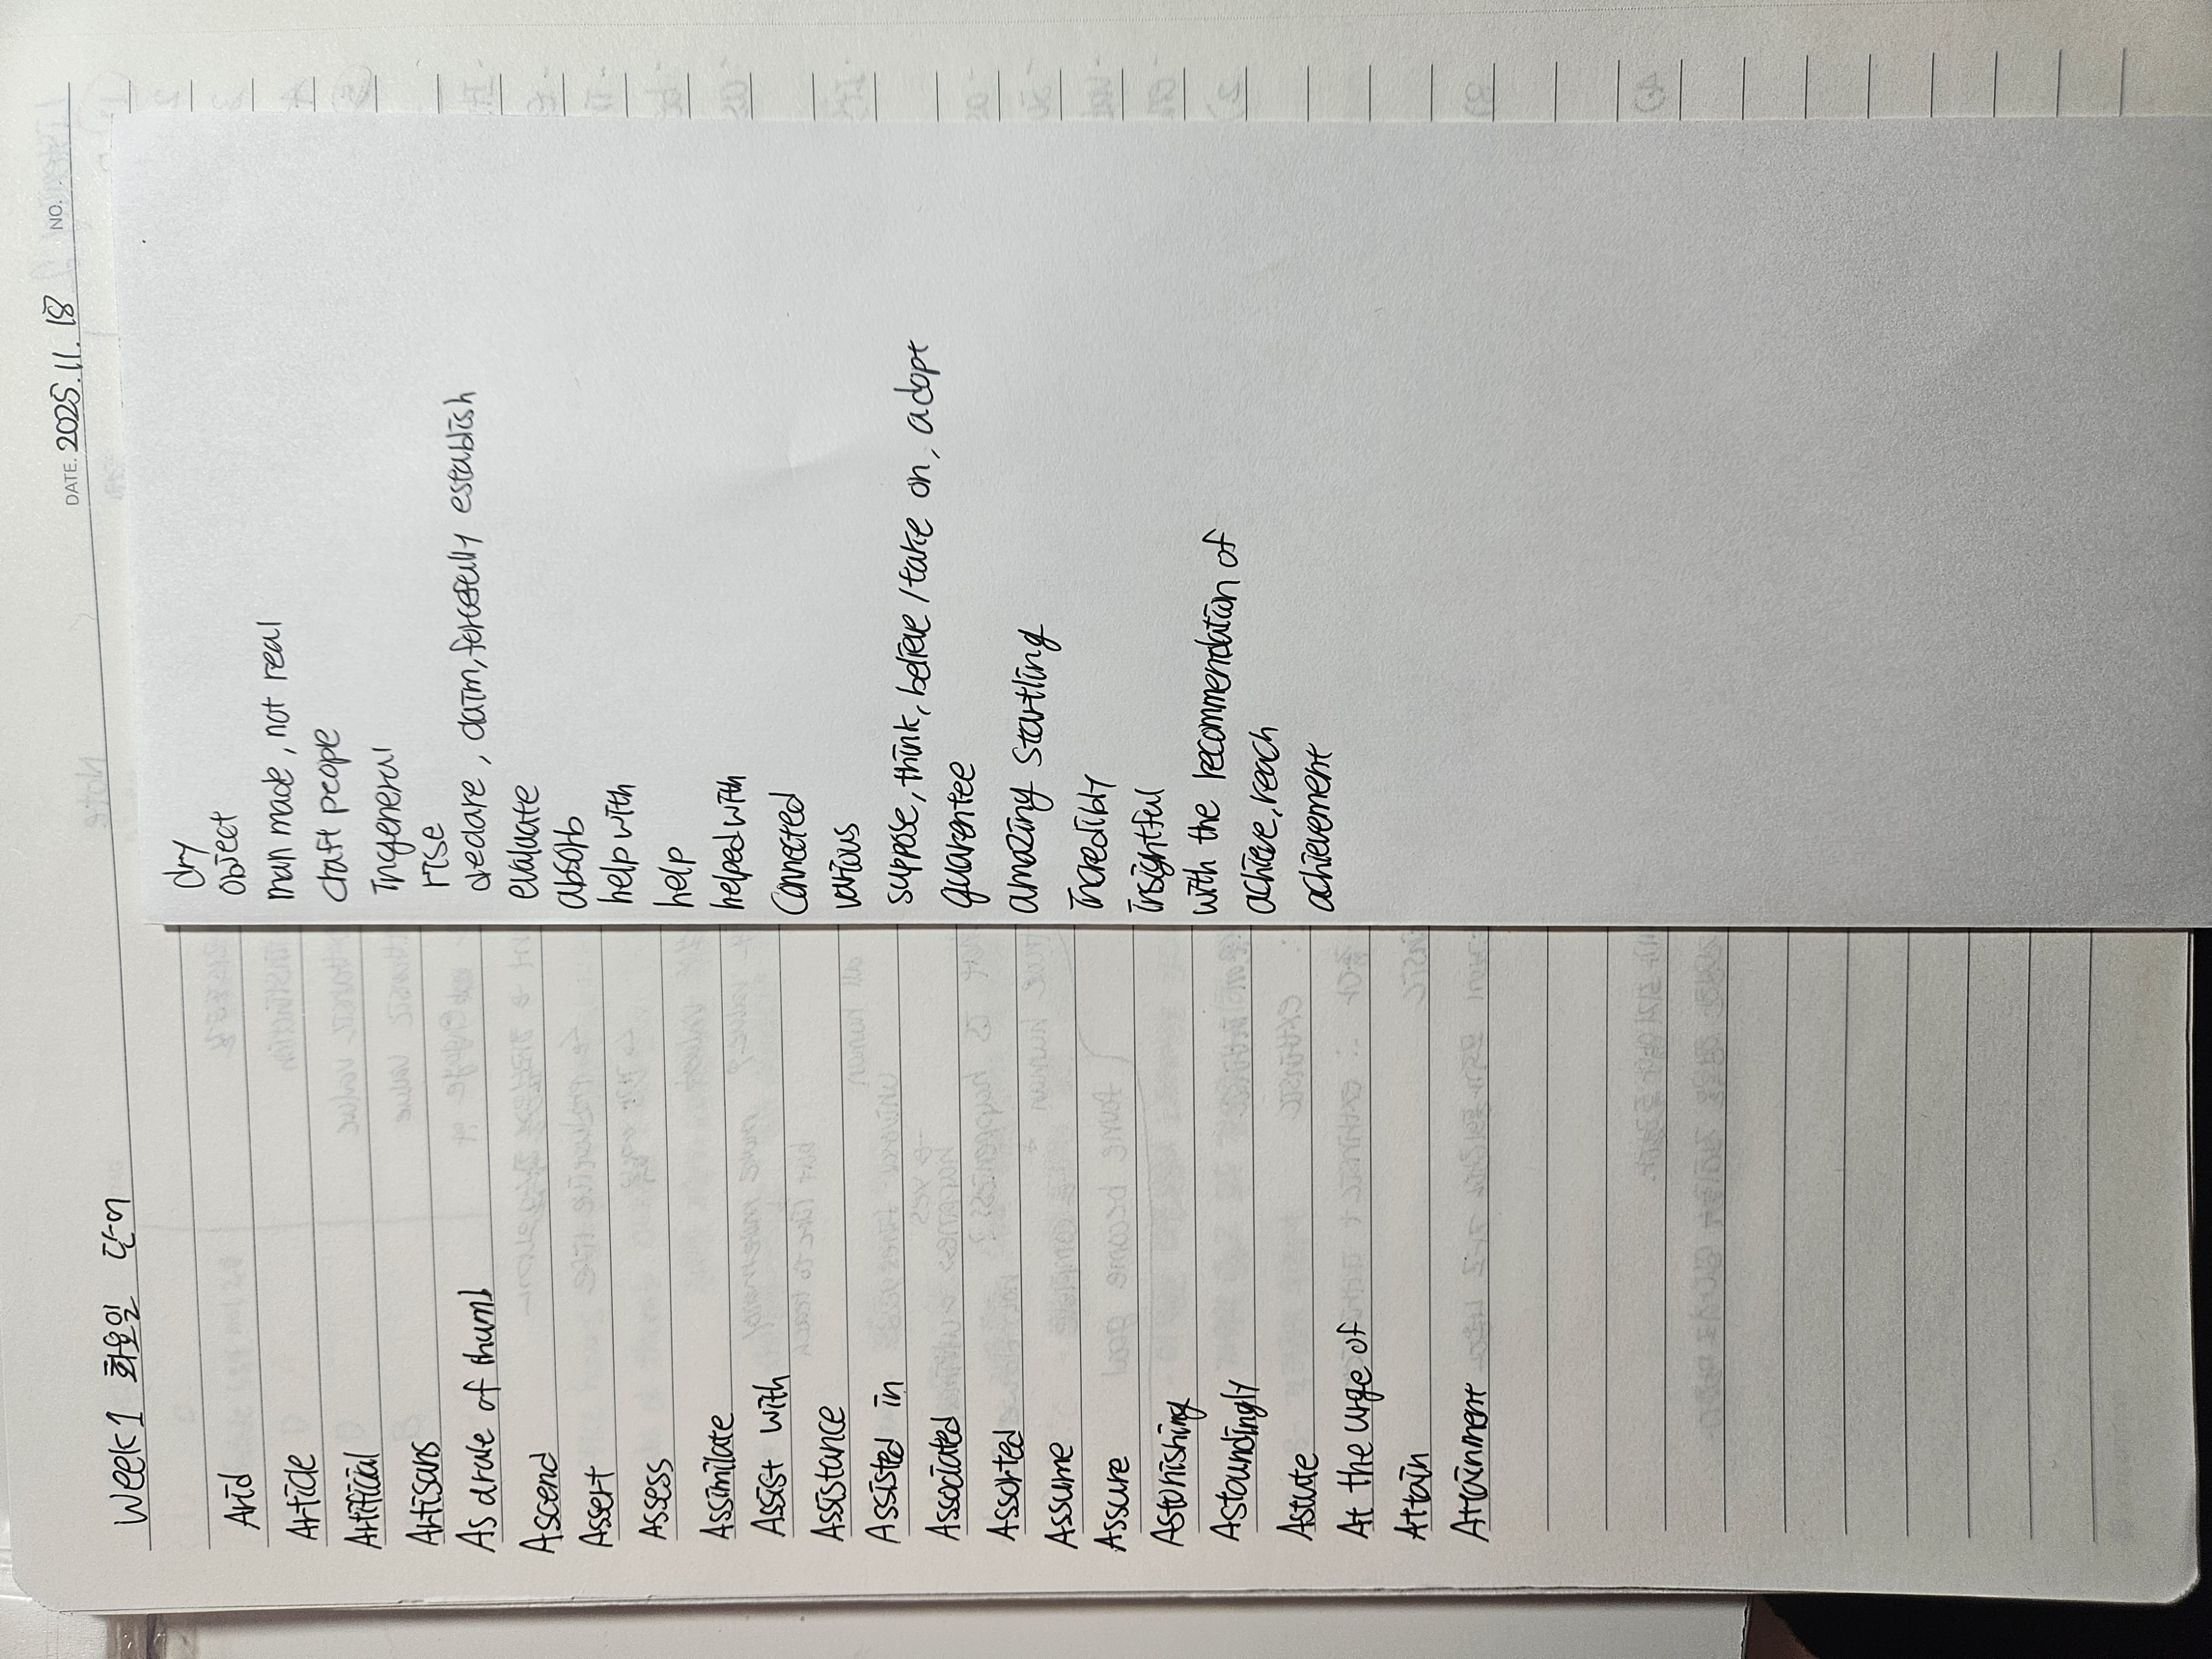 DATE. 2025.11.18 NO.
Week1 화요일 단어
Arid
Article
Artificial
Artisans
As a rule of thumb
Ascend
Assert
Assess
Assimilate
Assist with
Assistance
Assisted in
Associated
Assorted
Assume
Assure
Astonishing
Astoundingly
Astute
At the urge of
Attain
Attainment
dry
object
man made, not real
craft people
In general
rise
declare, claim, forcefully establish
evaluate
absorb
help with
help
helped with
Connected
various
suppose, think, believe / take on, adopt
guarentee
amazing startling
incredibly
insightful
with the recommendation of
achieve, reach
achievement